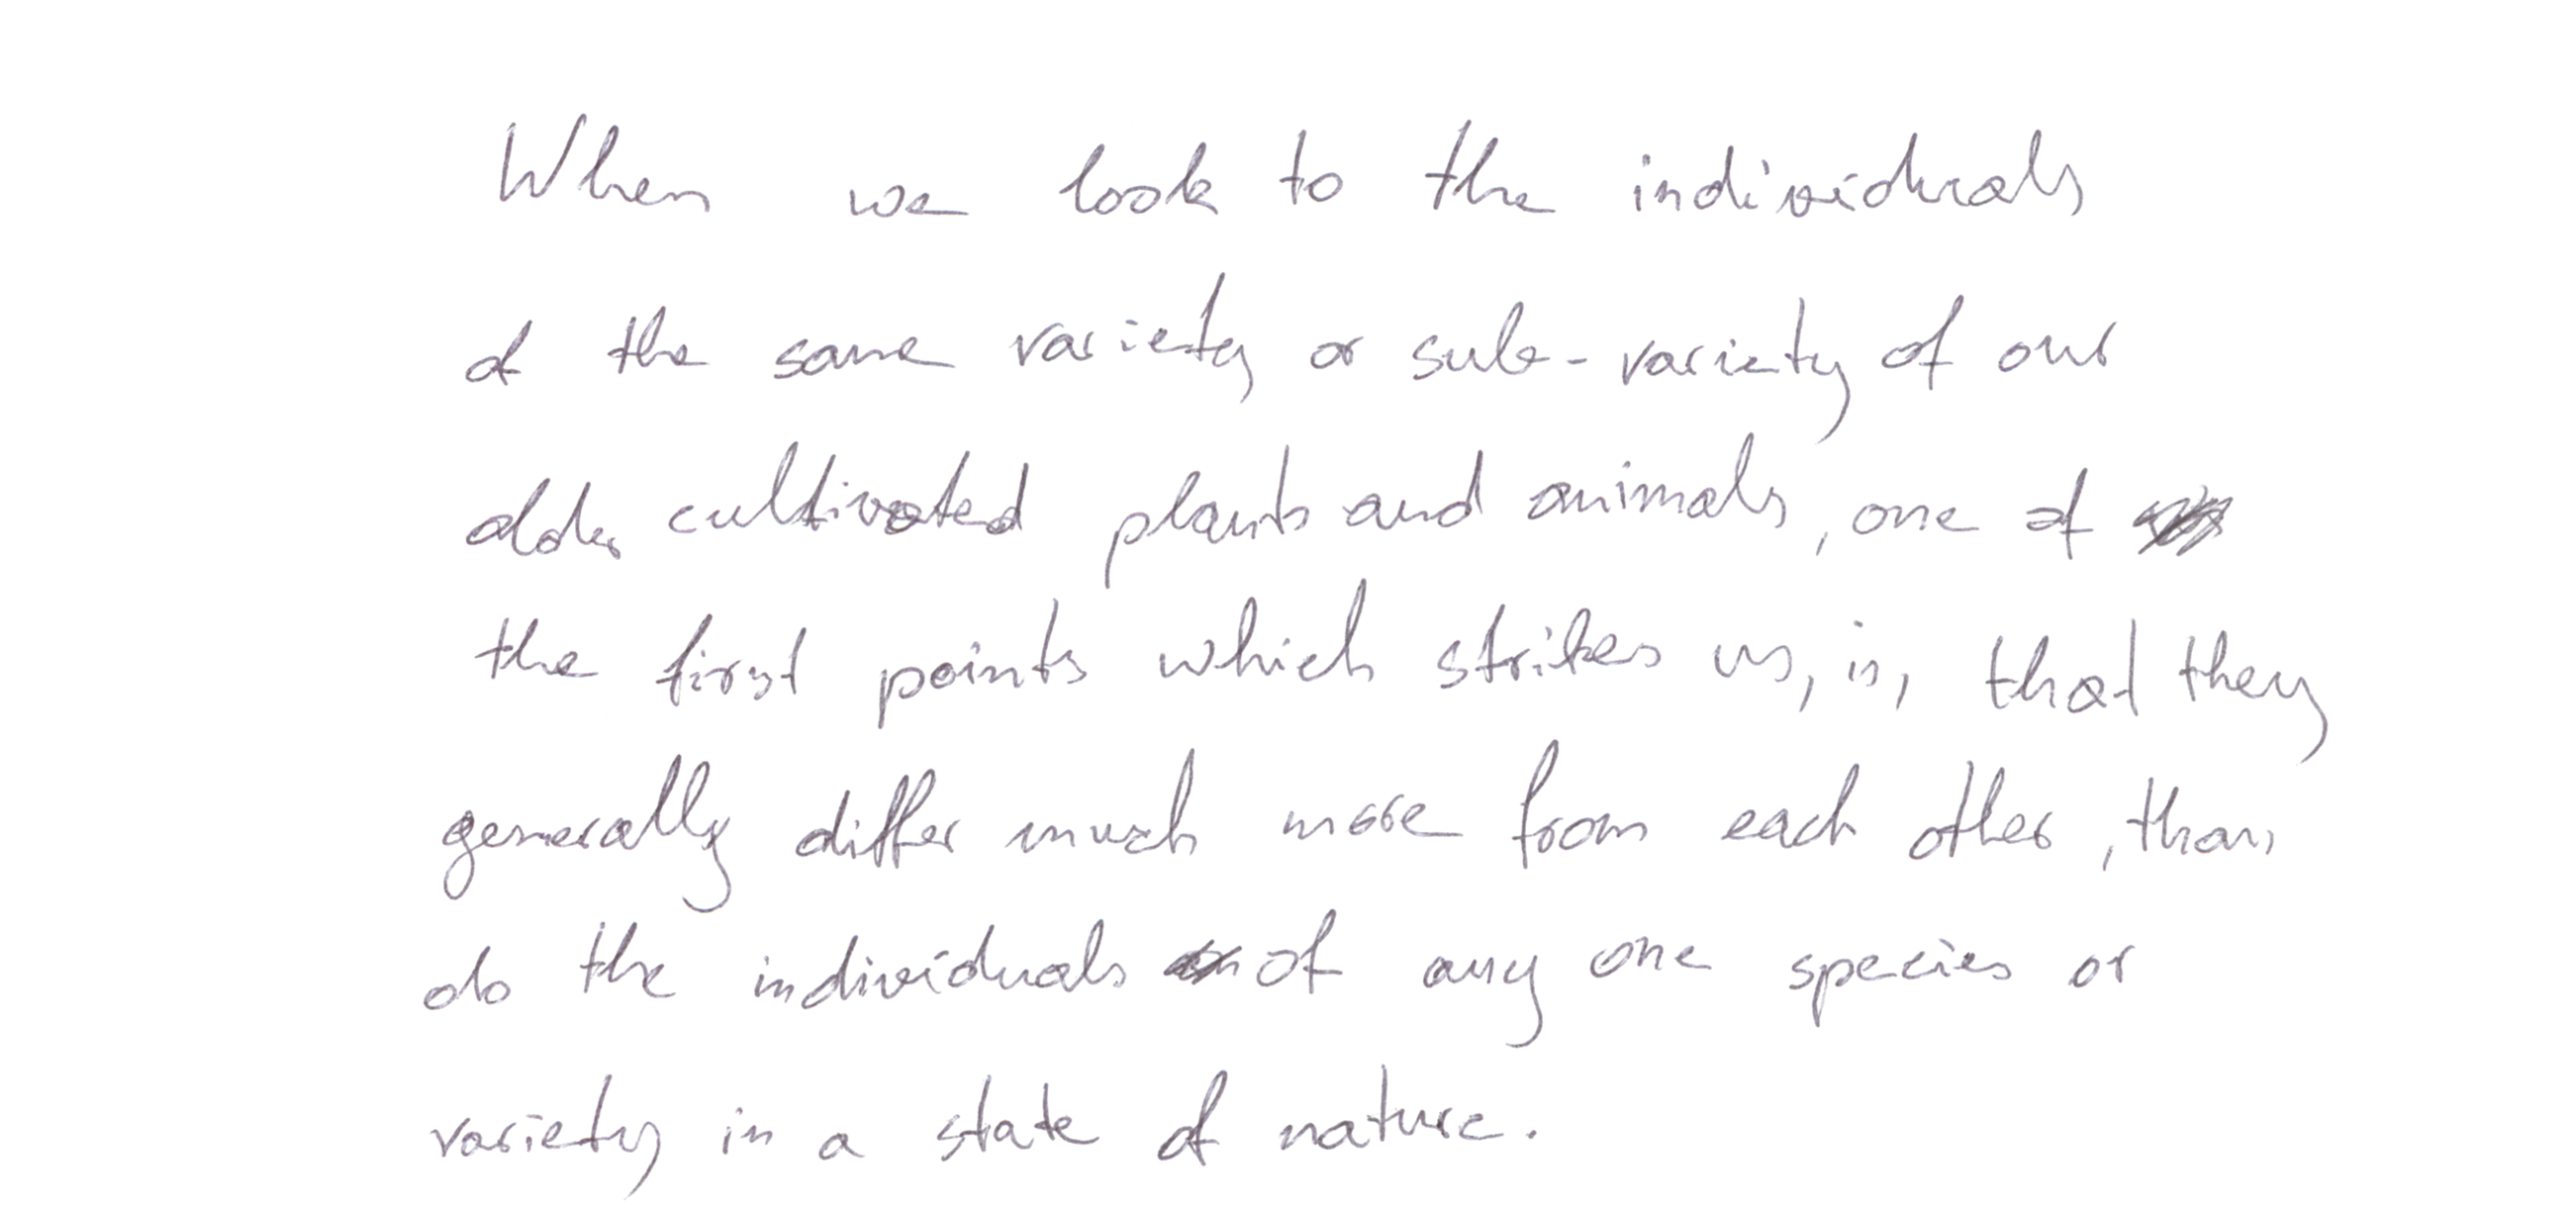 When we look to the individuals
of the same variety or sub-variety of our
older cultivated plants and animals, one of
the first points which strikes us, is, that they
generally differ much more from each other, than
do the individuals of any one species or
variety in a state of nature.